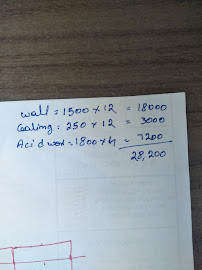 Wall = 1500 × 12 = 18000
Coaling : 250 × 12 = 3000
Acid wos = 1800 × 4 = 7200
28,200